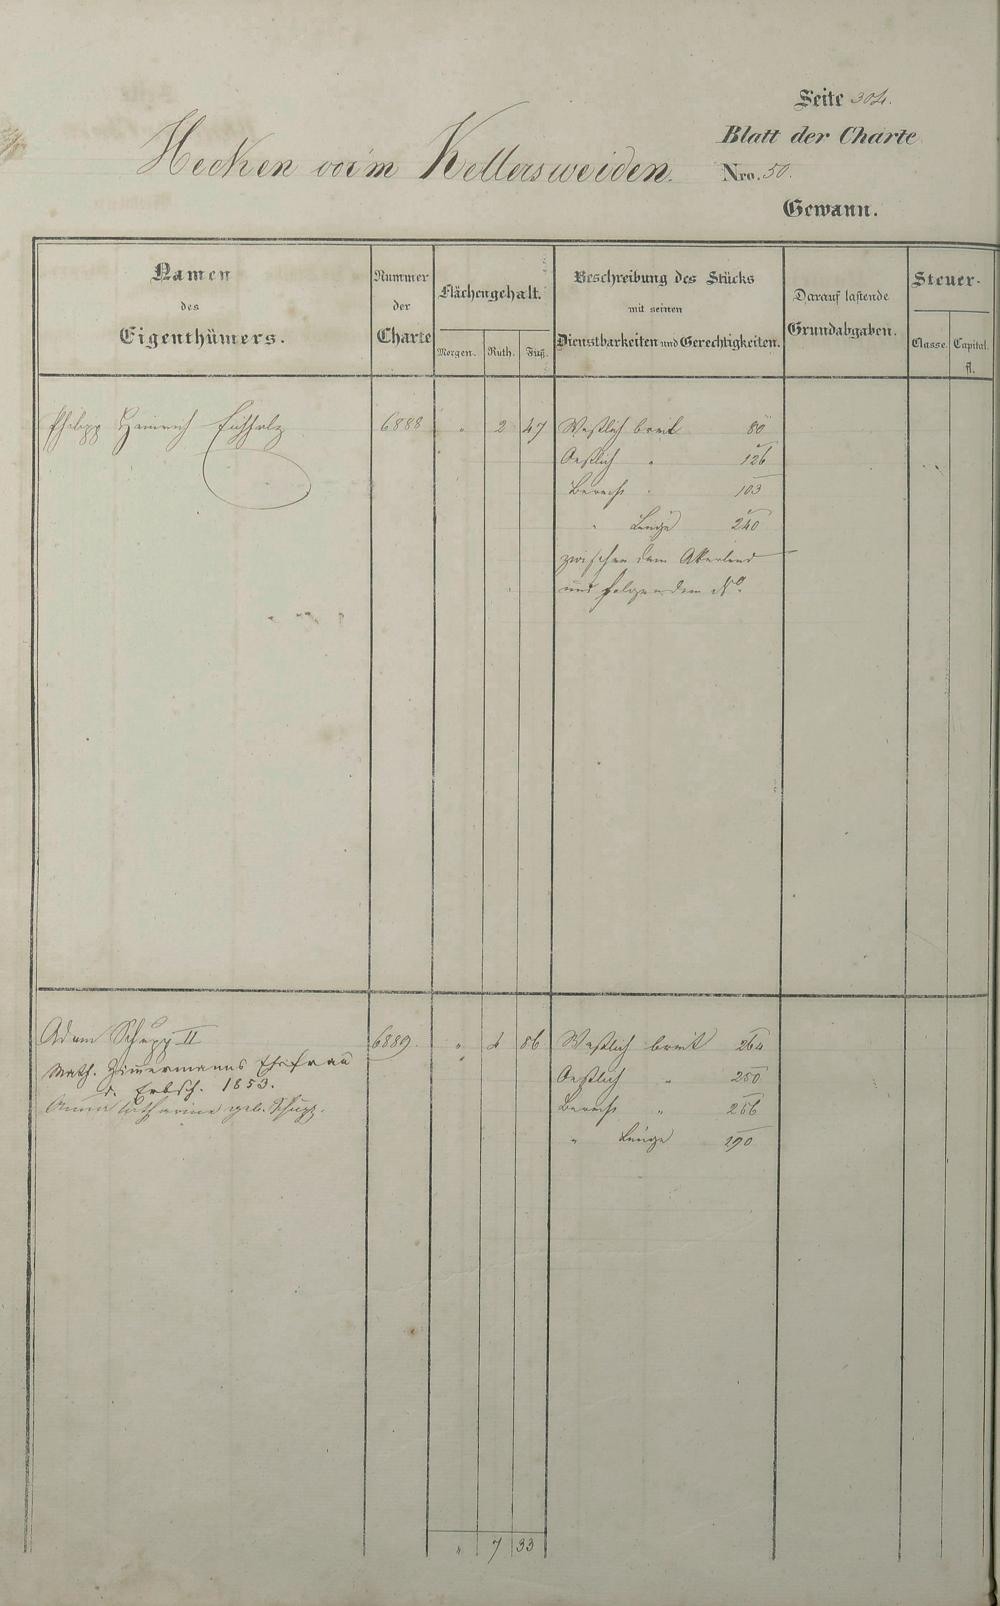 Seite 304.
Blatt der Charte
Hecken vor'm Kellersweiden. Nro. 50.
Gewann.
Namen des Eigenthümers.
Nummer der Charte
Flächengehalt.
Morgen. Ruth. Fuß.
Beschreibung des Stücks mit seinen Dienstbarkeiten und Gerechtigkeiten.
Darauf lastende Grundabgaben.
Steuer-
Classe. Capital. fl.
Philipp Heinrich Eichholz 6888 " 2 47 Westlich breit 80
Oestlich " 126
Berecht " 103
" Länge 240
zwischen dem Akerland
und folgendem No.
Adam Schupp II 6889. " 4 86 Westlich breit 264
Math. Zimmermanns Ehefrau Oestlich " 250
d. Erbsch. 1853.
Anna Catharina geb. Schupp. Berecht " 256
" Länge 190
" 7 33